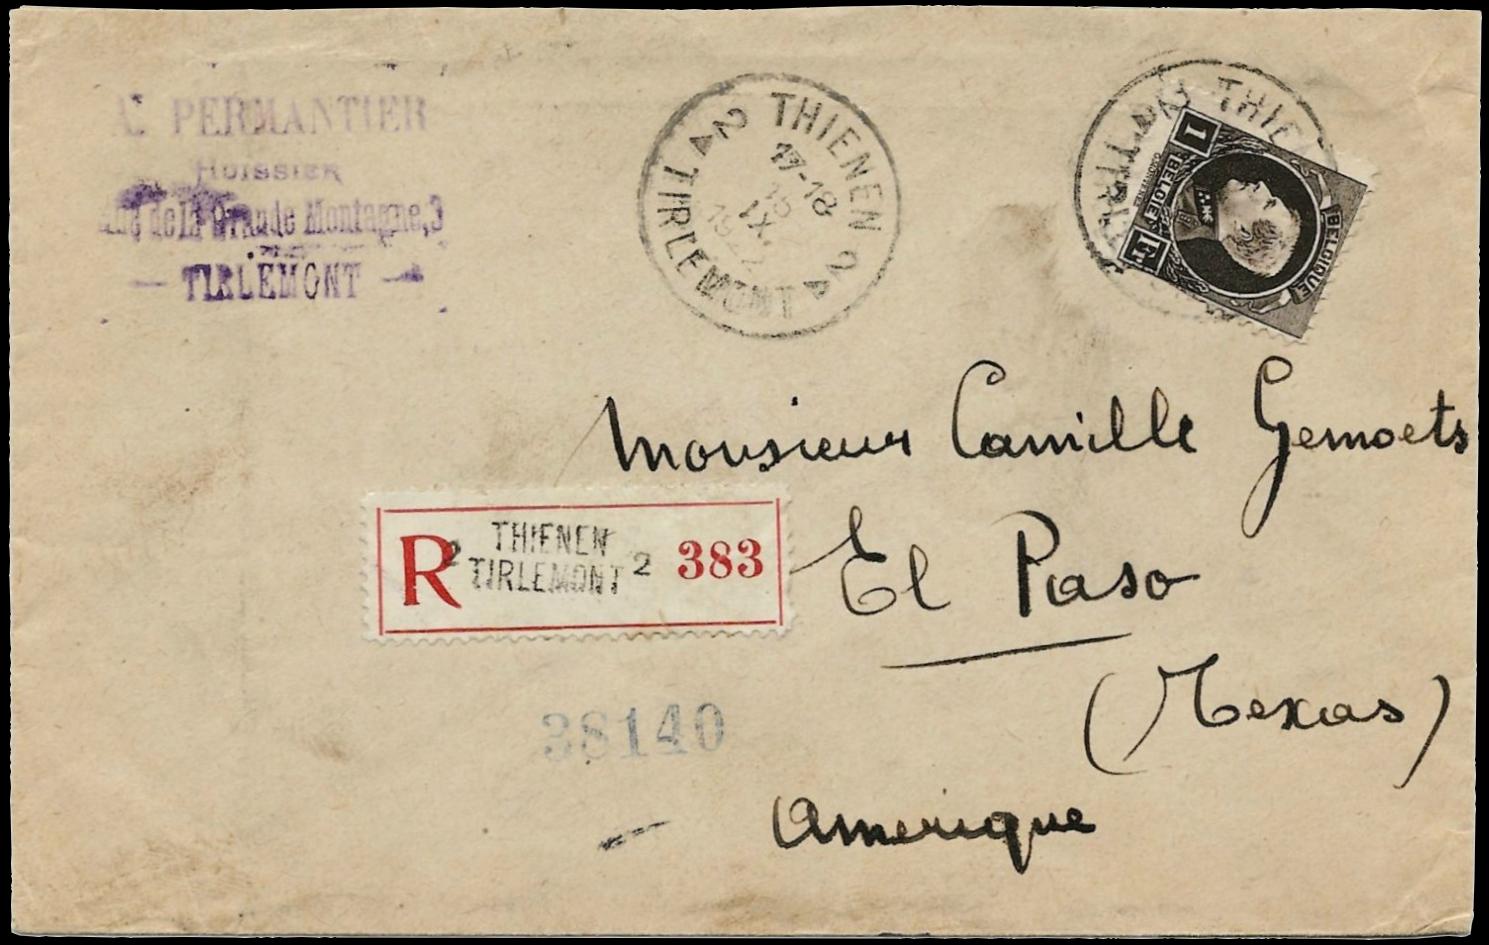 A. PERMANTIER
HUISSIER
Rue de la Grande Montagne, 3
— TIRLEMONT —
2 THIENEN 2
TIRLEMONT
17-18
IX
THIENEN
TIRL
1
BELGIE
FRANK
Fr
BELGIQUE
Monsieur Camille Gemoets
R 2 THIENEN 2 383
TIRLEMONT
El Paso
(Texas)
38140
Amerique